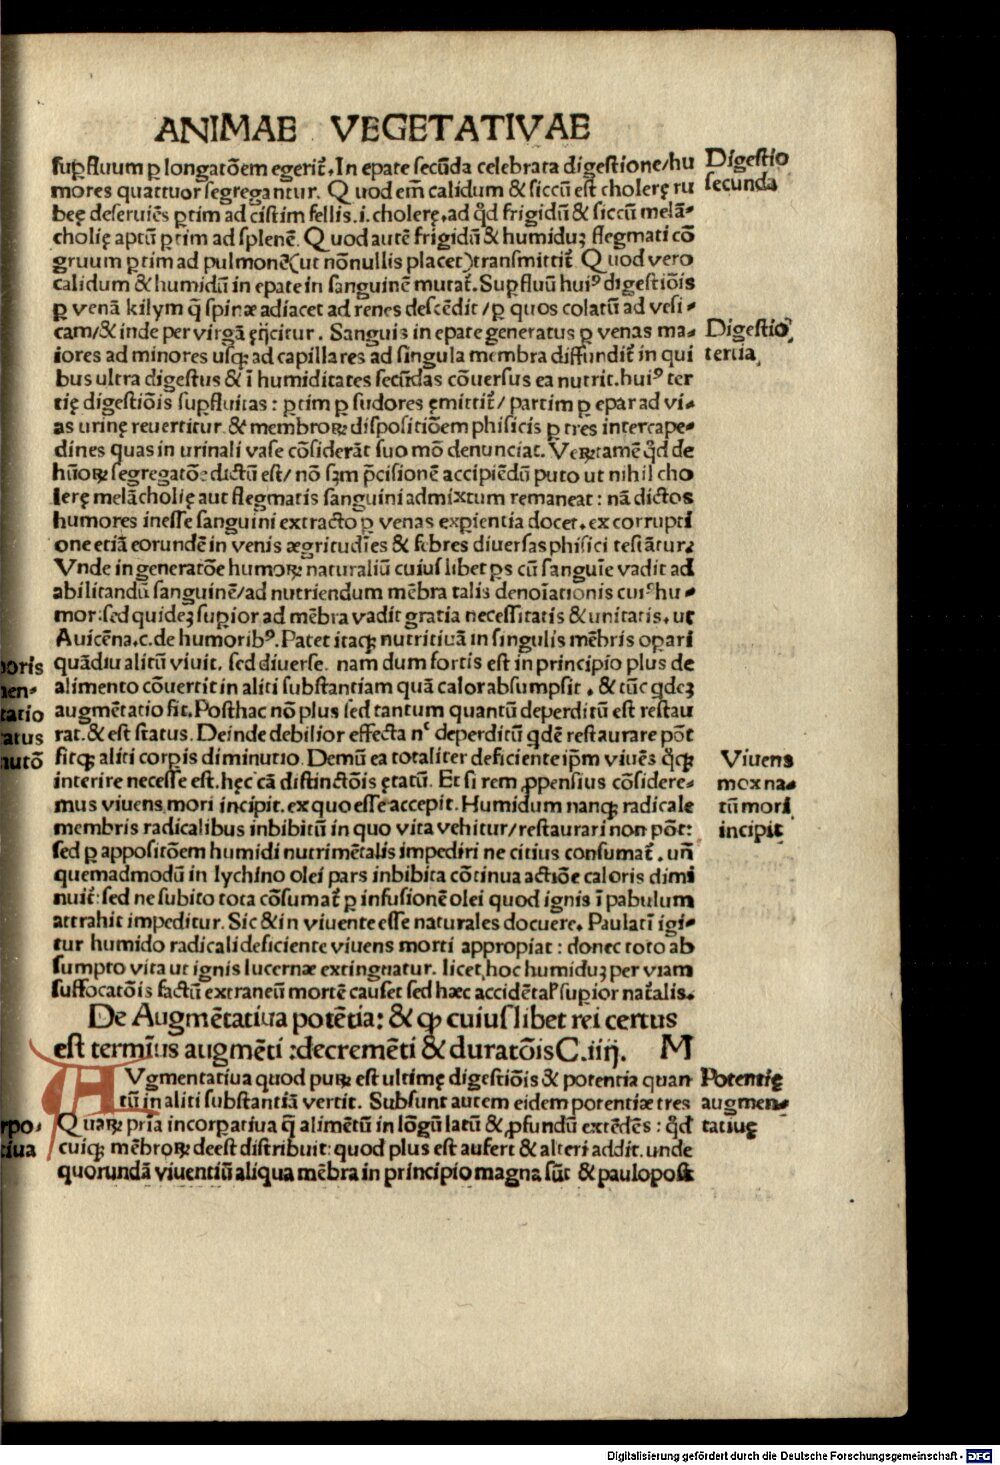 ANIMAE VEGETATIVAE
sup̱fluum p̱ longatõem egerit᷑. In epate secũda celebrata digestione/hu
mores quattuor segregantur. Quod em̃ calidum & siccũ est cholerę ru
beę deseruiẽs ꝑtim ad cistim fellis.i.cholerę.ad q̃d frigidũ & siccũ melã⸗
cholię aptũ ꝑtim ad splenẽ. Quod autẽ frigidũ & humiduꝫ flegmati cõ
gruum ꝑtim ad pulmonẽ(ut nõnullis placet)transmittit᷑. Quod vero
calidum & humidũ in epate in sanguinẽ mutat᷑. Suꝑfluũ huiꝰ digestiõis
ꝑ venã kilym q̃ spinæ adiacet ad renes descẽdit/ꝑ quos colatũ ad vesi⸗
cam/& inde per virgã ęijcitur. Sanguis in epate generatus ꝑ venas ma⸗
iores ad minores usqꝫ ad capillares ad singula membra diffundit᷑ in qui
bus ultra digestus & ĩ humiditates secũdas cõuersus ea nutrit.huiꝰ ter
tię digestiõis suꝑfluitas: ꝑtim ꝑ sudores ęmittit᷑/partim ꝑ epar ad vi⸗
as urinę reuertitur. & membroꝝ dispositiõem phisicis ꝑ tres intercape⸗
dines quas in urinali vase cõsiderãt suo mõ denunciat. Veꝝtamẽ q̃d de
hũoꝝ segregatõe dictũ est/nõ sꝫm p̃cisionẽ accipiẽdũ puto ut nihil cho
lerę melãcholię aut flegmatis sanguini admixtum remaneat: nã dictos
humores inesse sanguini extracto ꝑ venas exꝑientia docet.ex corrupti
one etiã eorundẽ in venis ægritudĩes & febres diuersas phisici testãtur:
Vnde in generatõe humoꝝ naturaliũ cuiuslibet ꝑs cũ sanguĩe vadit ad
abilitandũ sanguinẽ/ad nutriendum mẽbra talis denoĩationis cuiꝰ hu⸗
mor:sed quideꝫ suꝑior ad mẽbra vadit gratia necessitatis & unitatis.ut
Auicẽna.c.de humoribꝰ. Patet itaqꝫ nutritiuã in singulis mẽbris oꝑari
quãdiu alitũ viuit. sed diuerse. nam dum fortis est in principio plus de
alimento cõuertit in aliti substantiam quã calor absumpsit. & tũc qdeꝫ
augmẽtatio fit. Posthac nõ plus sed tantum quantũ deperditũ est restau
rat.& est status. Deinde debilior effecta nͨ deperditũ qdẽ restaurare põt
fitqꝫ aliti corꝑis diminutio. Demũ ea totaliter deficiente ip̃m viuẽs q̃cꝗꝫ
interire necesse est.hęc cã distinctõis ętatũ. Et si rem ꝓpensius cõsidere⸗
mus viuens mori incipit.ex quo esse accepit. Humidum nanqꝫ radicale
membris radicalibus inbibitũ in quo vita vehitur/restaurari non põt:
sed ꝑ appositõem humidi nutrimẽtalis impediri ne citius consumat᷑. uñ
quemadmodũ in lychino olei pars inbibita cõtinua actiõe caloris dimi
nuit᷑:sed ne subito tota cõsumat᷑ ꝑ infusionẽ olei quod ignis ĩ pabulum
attrahit impeditur. Sic & in viuente esse naturales docuere. Paulatĩ igi⸗
tur humido radicali deficiente viuens morti appropiat: donec toto ab
sumpto vita ut ignis lucernæ extinguatur. licet hoc humiduꝫ per viam
suffocatõis factũ extraneũ mortẽ causet sed hæc accidẽtaɫ suꝑior nat᷑alis.
De Augmẽtatiua potẽtia: & ꝙ cuiuslibet rei certus
est termĩus augmẽti :decremẽti & duratõis C.iiij. M
AVgmentatiua quod puꝝ est ultimę digestiõis & potentia quan
tũ in aliti substantiã vertit. Subsunt autem eidem potentiæ tres
Quaꝝ pr̃ia incorpatiua q̃ alimẽtũ in lõgũ latũ & ꝓfundũ extẽdẽs: q̃d
cuiqꝫ mẽbroꝝ deest distribuit: quod plus est aufert & alteri addit.unde
quorundã viuentiũ aliqua mẽbra in principio magna sũt & paulopost
Digestio
secunda
Digestio
tertia
Viuens
mox na⸗
tũ mori
incipit
Potentię
augmen⸗
tatiuę
Digitalisierung gefördert durch die Deutsche Forschungsgemeinschaft - DFG